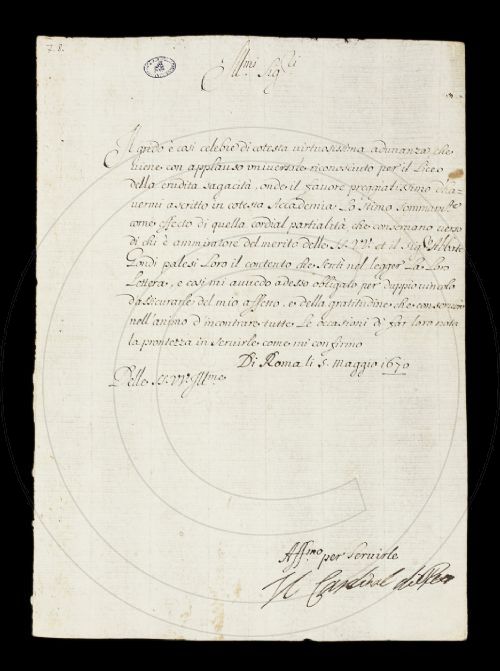 7. 8.
Ill.mi Sig.ri
Il grido è così celebre di cotesta virtuosissima adunanza che
viene con applauso universale riconosciuto per il Liceo
della erudita sagacità, onde il favore pregiatissimo d'ha-
vermi ascritto in cotesta Accademia Lo stimo sommam.te
come effetto di quella cordial partialità, che conservano verso
di chi è ammiratore del merito delle SS.VV. et il Sig. Abbate
Gondi palesi Loro il contento che sentì nel legger La Loro
Lettera, e così mi avvedo adesso obligato per duppio vincolo
d'assicurarle del mio affetto, e della gratitudine che conservarò
nell'animo d'incontrare tutte Le occasioni di far loro nota
la prontezza in servirle come mi confirmo
Di Roma li 5. Maggio 1670
Delle SS.VV. Ill.me
Aff.mo per servirle
Il Cardinal